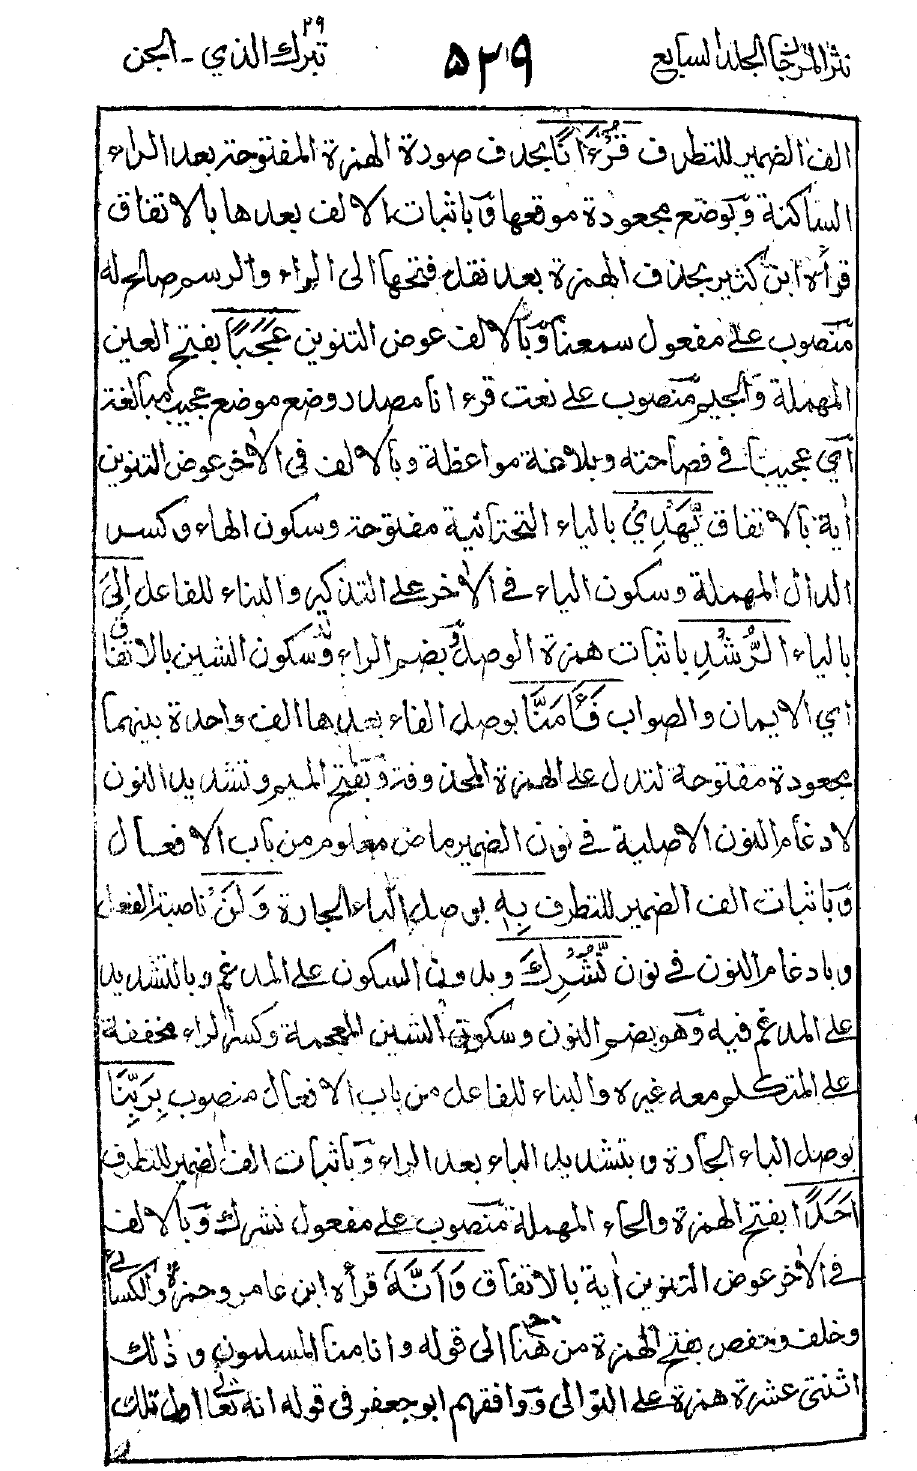 نثر المرجان الجلد السابع
٥٣٩
تبرك الذي ٢٩ - الجن
الف الضمير للتطرف قُرْءَانًا بحذف صورة الهمزة المفتوحة بعد الراء
الساكنة وبوضع مجعودة موقعها وباثبات الالف بعدها بالاتفاق
قرأه ابن كثير بحذف الهمزة بعد نقل فتحها الى الراء والرسم صالح له
منصوب على مفعول سمعنا وبالالف عوض التنوين عَجَبًا بفتح العين
المهملة والجيم منصوب على نعت قرءانا مصدر وضع موضع عجيب مبالغة
اي عجيبا في فصاحته وبلاغة مواعظة وبالالف في الآخر عوض التنوين
اية بالاتفاق يَّهْدِيْ بالياء التحتانية مفتوحة وسكون الهاء وكسر
الدال المهملة وسكون الياء في الآخر على التذكير والبناء للفاعل اِلَى
بالياء الرُّشْدِ باثبات همزة الوصل وبضم الراء وسكون الشين بالاتفاق
اي الايمان والصواب فَـَٔامَنَّا بوصل الفاء بعدها الف واحدة بينهما
مجعودة مفتوحة لتدل على الهمزة المحذوفة وبفتح الميم وتشديد النون
لادغام النون الاصلية في نون الضمير ماض معلوم من باب الافعال
وباثبات الف الضمير للتطرف بِهٖ بوصل الباء الجارة وَلَنْ ناصبة الفعل
وبادغام النون في نون نُّشْرِكَ وبدون السكون على المدغم وبالتشديد
على المدغم فيه وهو بضم النون وسكون الشين المعجمة وكسر الراء مخففة
على المتكلم معه غيره والبناء للفاعل من باب الافعال منصوب بِرَبِّنَا
بوصل الباء الجارة وبتشديد الباء بعد الراء وباثبات الف الضمير للتطرف
اَحَدًا بفتح الهمزة والحاء المهملة منصوب على مفعول نشرك وبالالف
في الآخر عوض التنوين اية بالاتفاق وَاَنَّهٗ قرأه ابن عامر وحمزة والكسائي
وخلف وحفص بفتح الهمزة من هنا الى قوله وانا منا المسلمون وذلك
اثنتي عشرة همزة على التوالي ووافقهم ابوجعفر في قوله انه تعالى تلك